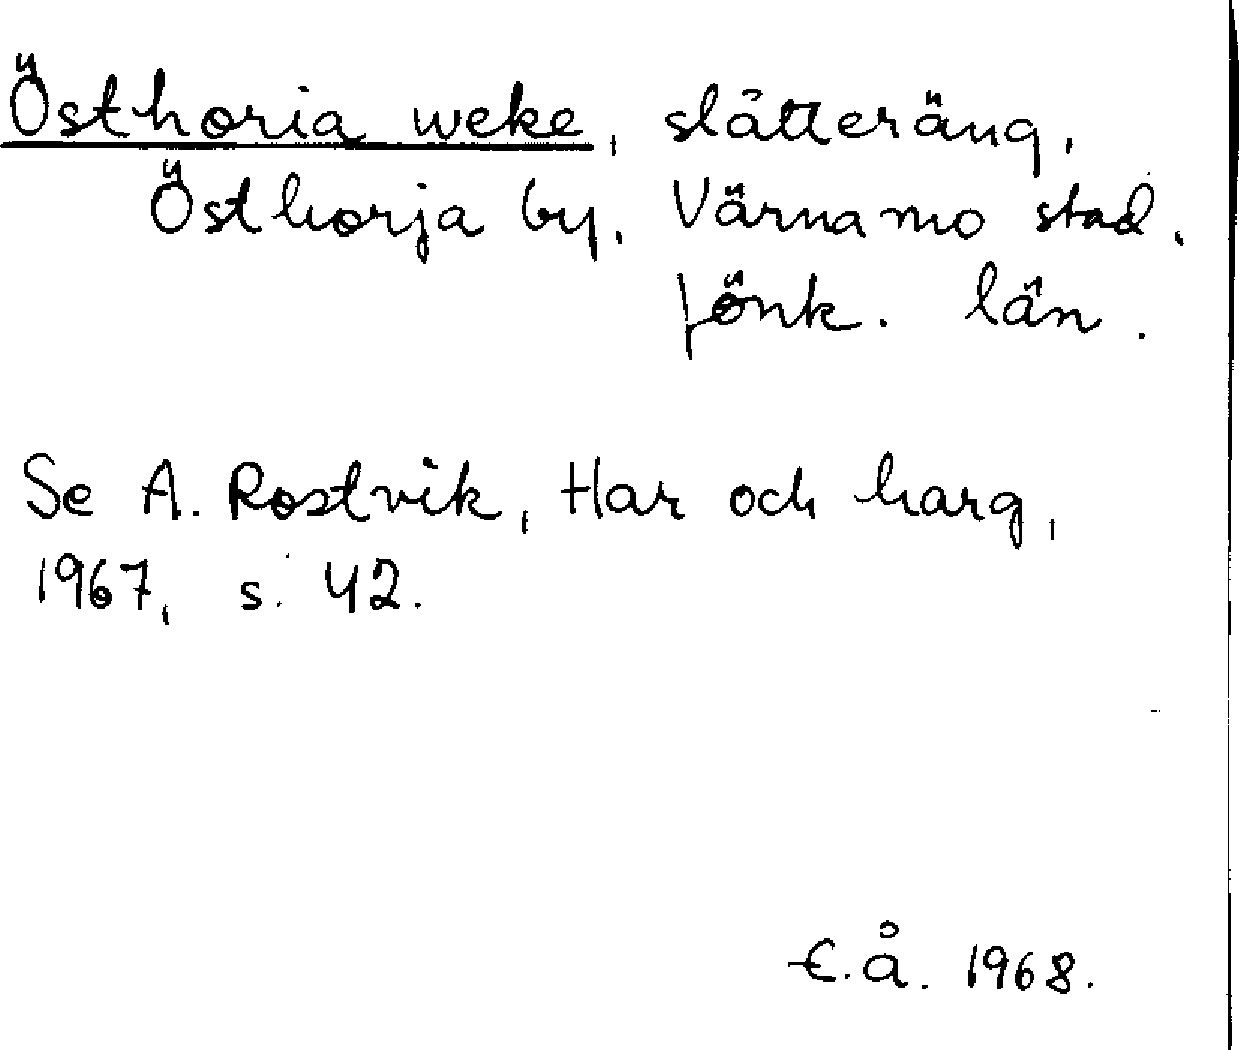 Östhoria weke, slåtteräng,
Östhorja by, Värnamo stad,
Jönk. län.
Se A. Rostvik, Har och harg,
1967, s. 42.
E.Å. 1968.